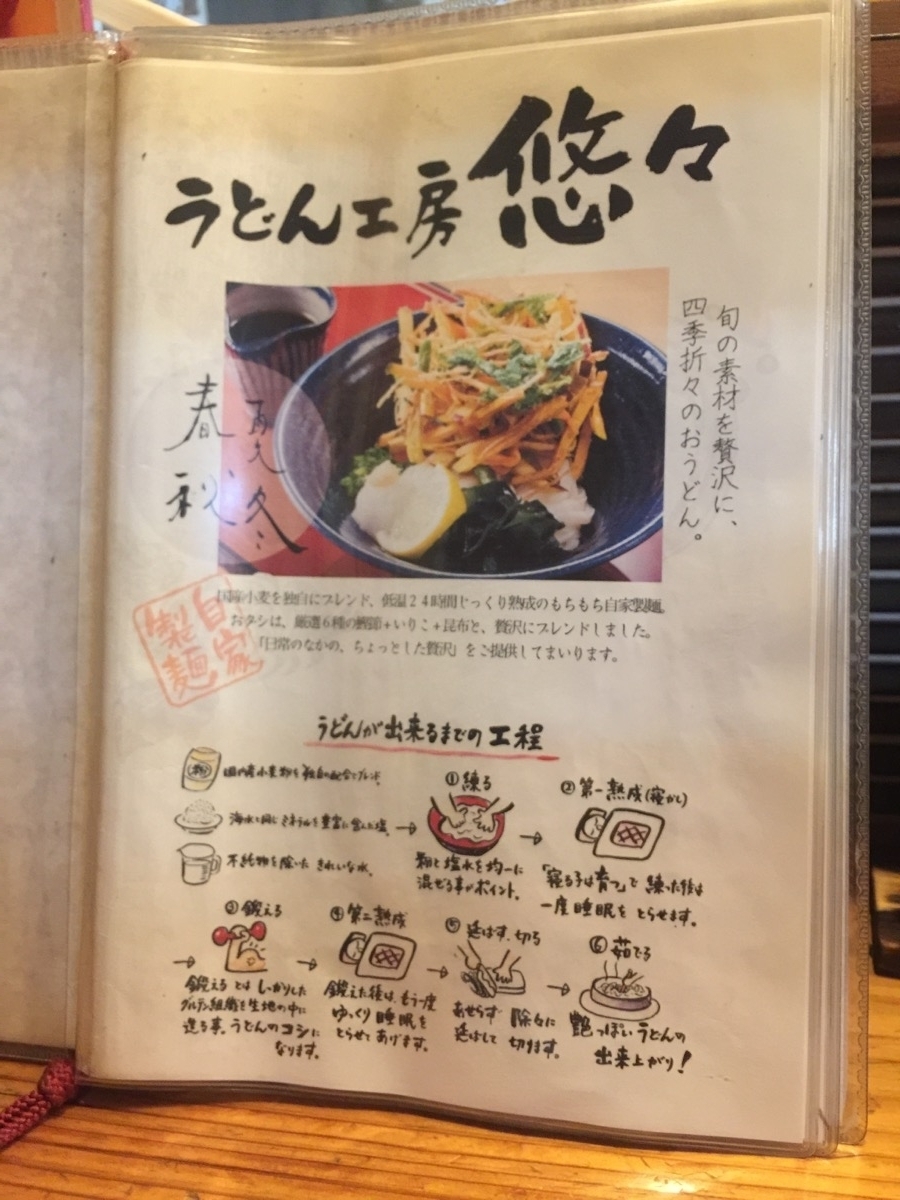 うどん工房 悠々
旬の素材を贅沢に、
四季折々のおうどん。
春夏
秋冬
国産小麦を独自にブレンド、低温24時間じっくり熟成のもちもち自家製麺。
おダシは、厳選6種の鰹節+いりこ+昆布と、贅沢にブレンドしました。
「日常のなかの、ちょっとした贅沢」をご提供してまいります。
自家
製麺
うどんが出来るまでの工程
国内産小麦粉を独自の配合でブレンド。
海水と同じミネラルを豊富に含んだ塩。
不純物を除いたきれいな水。
①練る
粉と塩水を均一に
混ぜる事がポイント。
②第一熟成(寝かし)
「寝る子は育つ」で練った後は
一度睡眠をとらせます。
③鍛える
鍛えるとはしっかりした
グルテン組織を生地の中に
造る事。うどんのコシに
なります。
④第二熟成
鍛えた後は、もう一度
ゆっくり睡眠を
とらせてあげます。
⑤延ばす、切る
あせらず 除々に
延ばして 切ります。
⑥茹でる
艶っぽいうどんの
出来上がり!